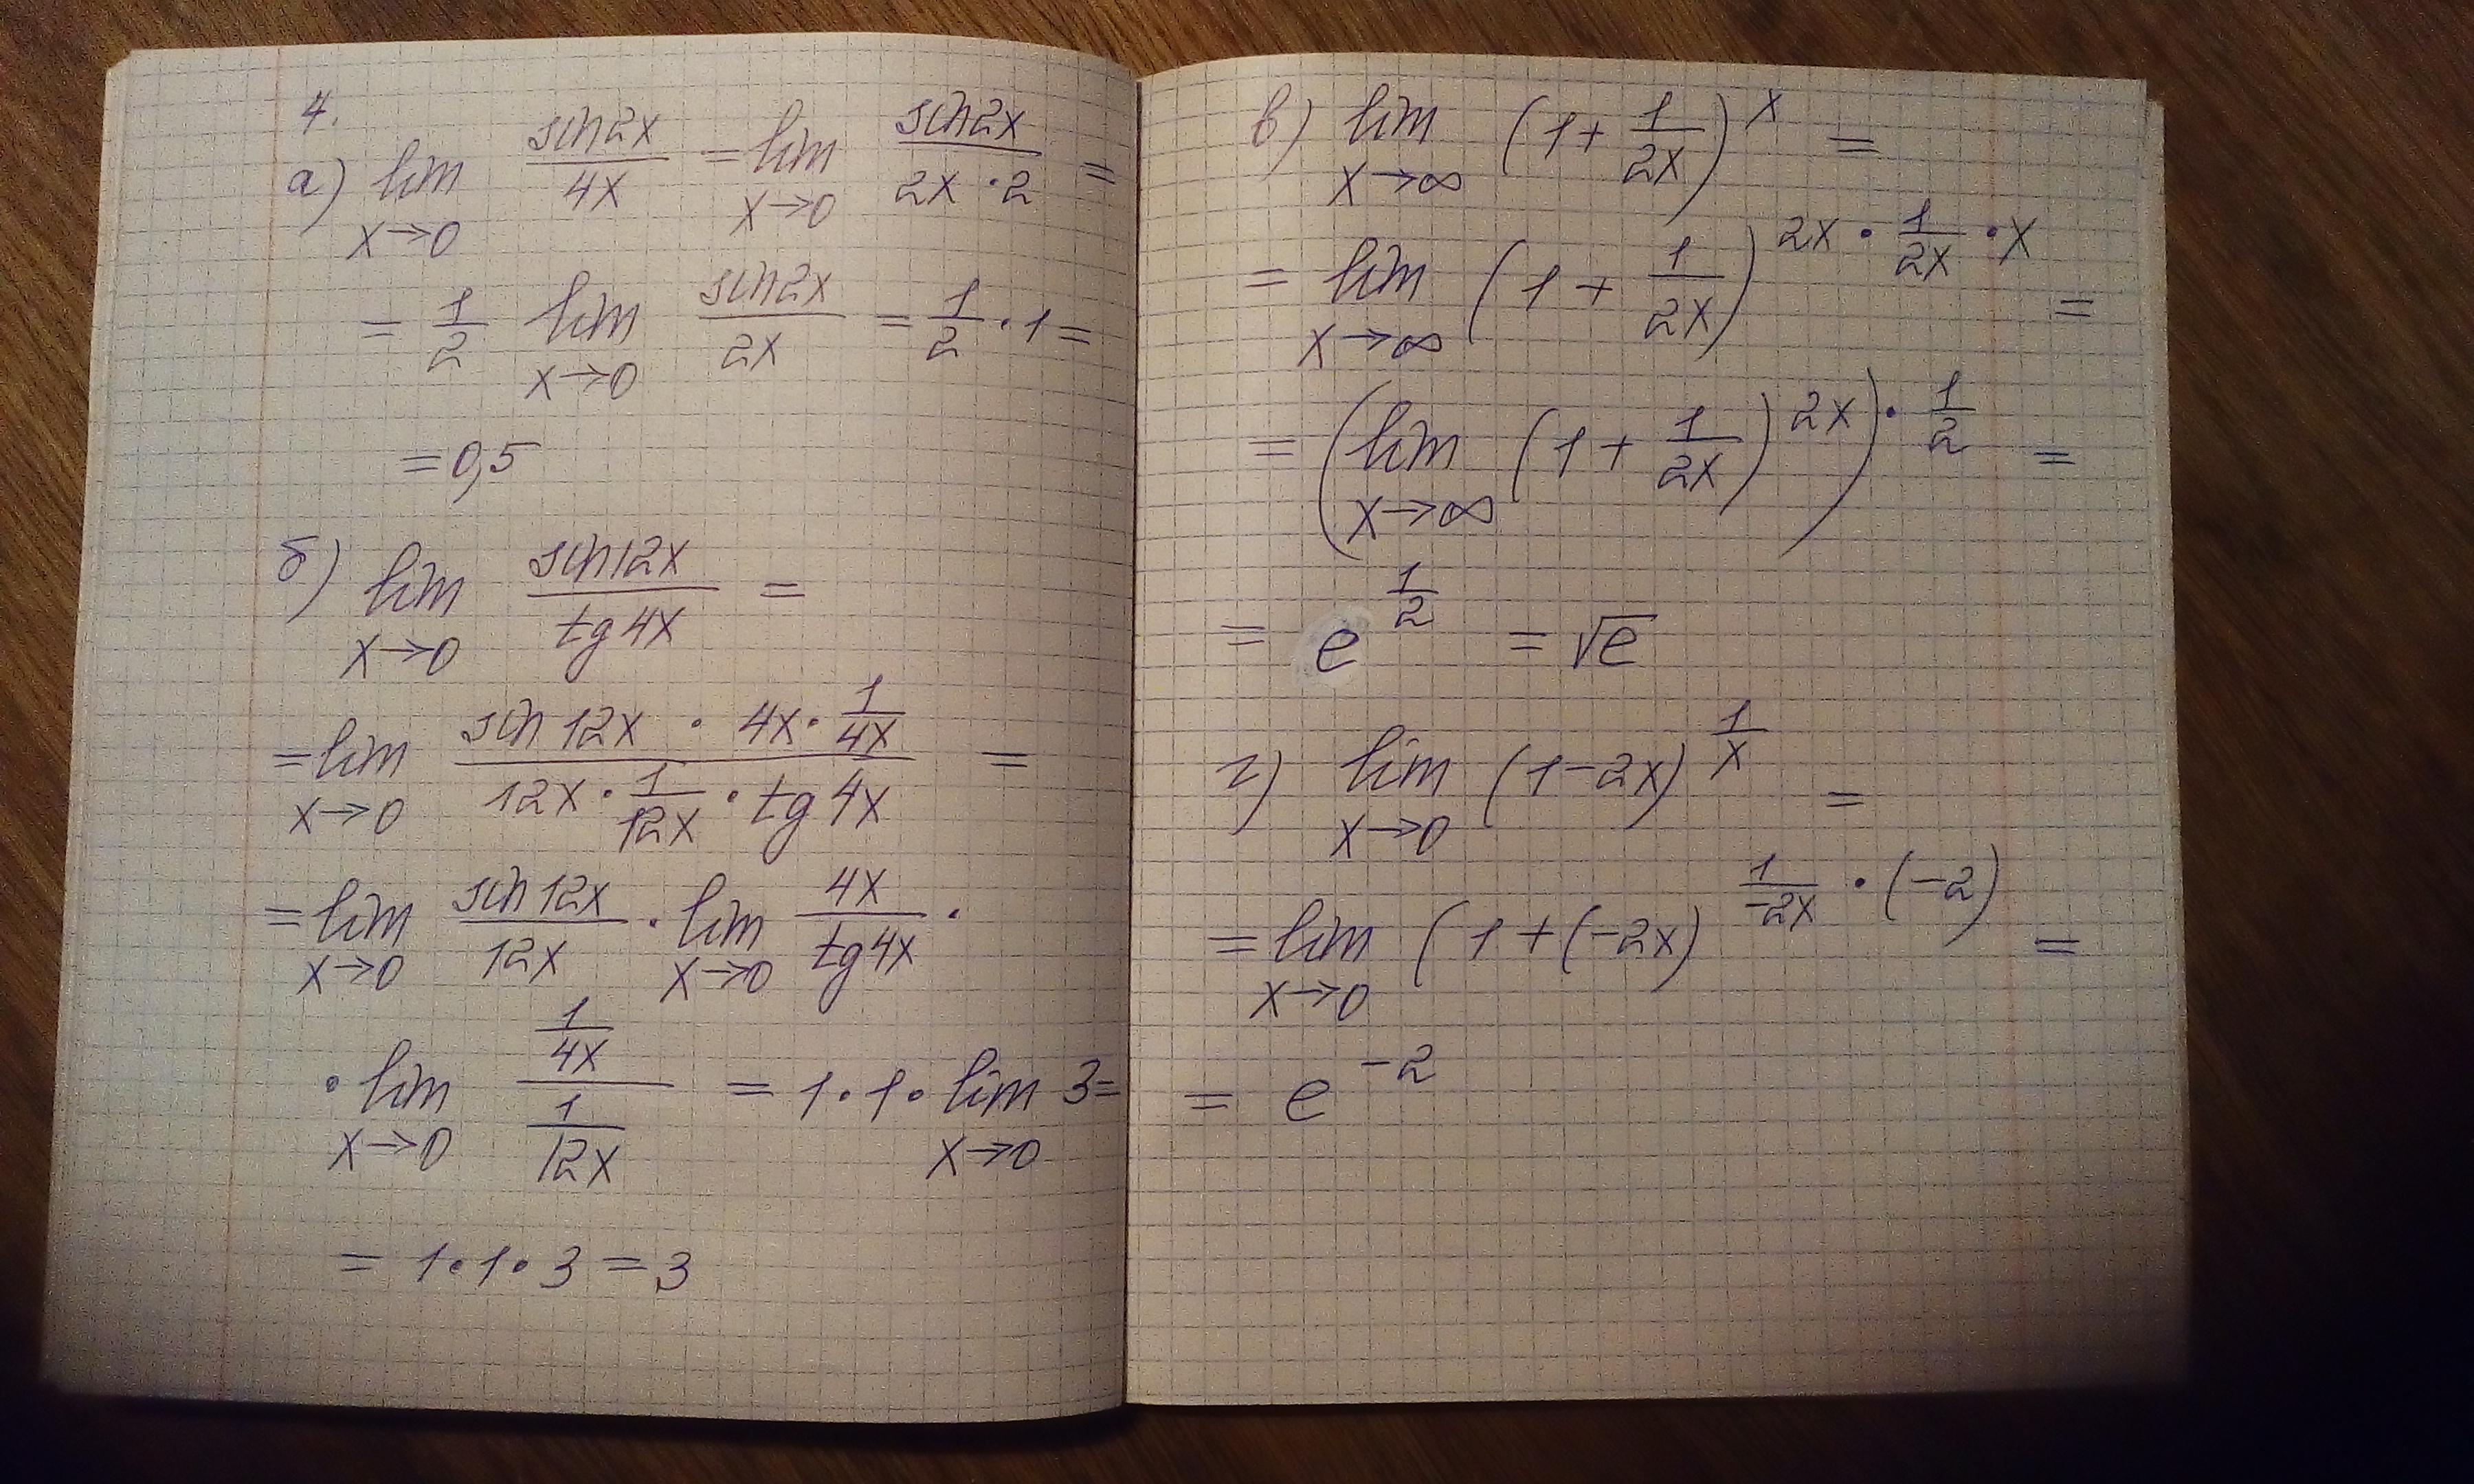 4.
а) lim x→0 sin2x/4x = lim x→0 sin2x/2x·2 =
= 1/2 lim x→0 sin2x/2x = 1/2 · 1 =
= 0,5
б) lim x→0 sin12x/tg4x =
= lim x→0 (sin12x · 4x · 1/4x)/(12x · 1/12x · tg4x) =
= lim x→0 sin12x/12x · lim x→0 4x/tg4x ·
· lim x→0 (1/4x)/(1/12x) = 1·1· lim x→0 3 =
= 1·1·3 = 3
в) lim x→∞ (1+1/2x)^x =
= lim x→∞ (1+1/2x)^(2x · 1/2x · x) =
= (lim x→∞ (1+1/2x)^2x)^(· 1/2) =
= e^(1/2) = √e
г) lim x→0 (1-2x)^(1/x) =
= lim x→0 (1+(-2x)^(1/-2x · (-2)) =
= e^-2